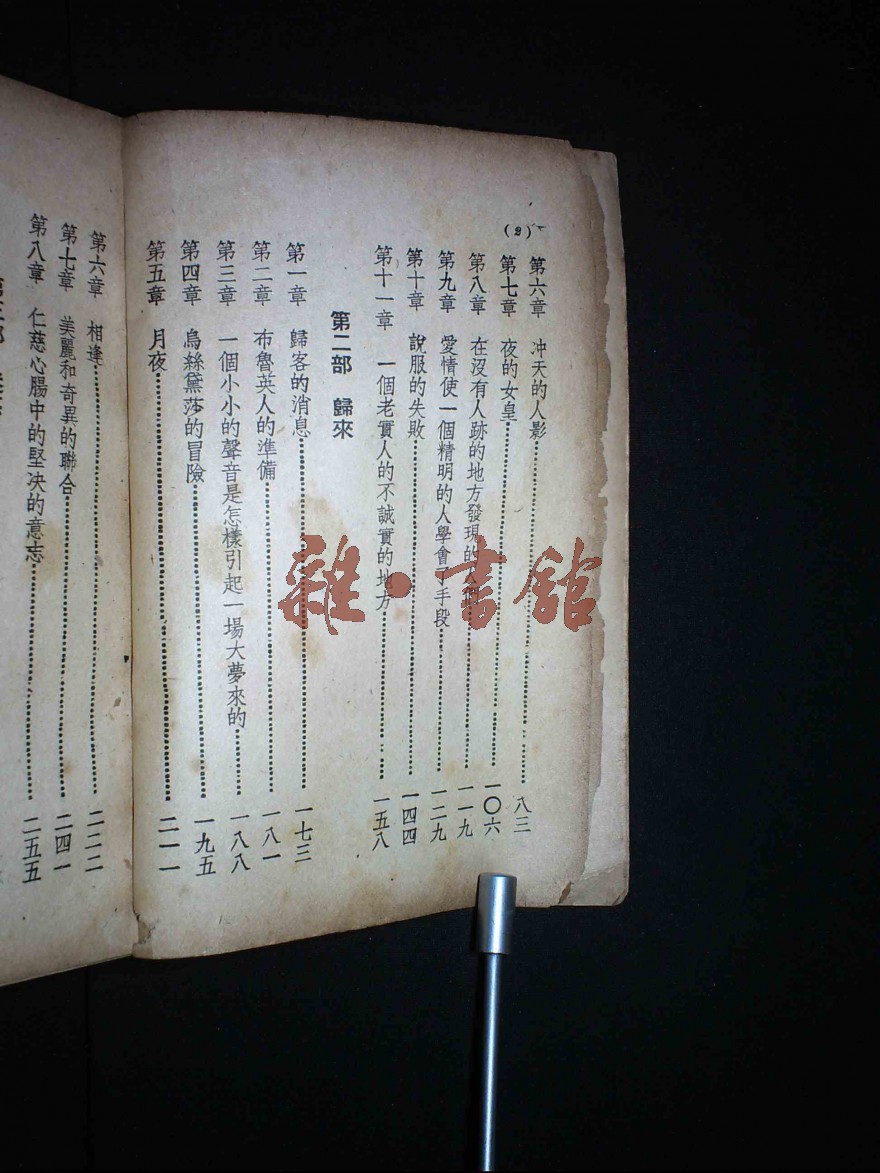 (2)
第六章 冲天的人影 八三
第七章 夜的女皇 一〇六
第八章 在沒有人跡的地方發現的 一一九
第九章 愛情使一個精明的人學會了手段 一二九
第十章 說服的失敗 一四四
第十一章 一個老實人的不誠實的地方 一五八
第二部 歸來
第一章 歸客的消息 一七三
第二章 布魯英人的準備 一八一
第三章 一個小小的聲音是怎樣引起一場大夢來的 一八八
第四章 烏絲黛莎的冒險 一九五
第五章 月夜 二一一
第六章 相逢 二二二
第七章 美麗和奇異的聯合 二四一
第八章 仁慈心腸中的堅决的意志 二五五
雜·書館